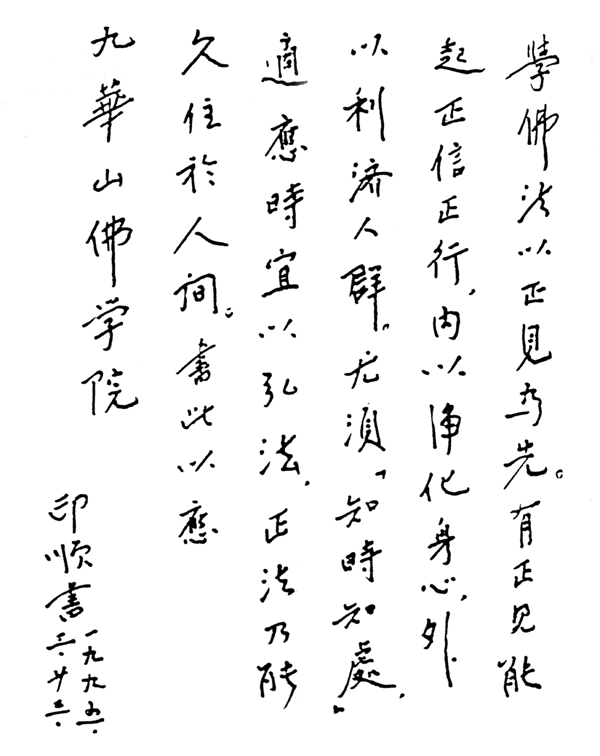 學佛法以正見為先。有正見能
起正信正行，內以淨化身心，外
以利濟人群。尤須「知時知處」，
適應時宜以弘法，正法乃能
久住於人間。書此以應
九華山佛学院
印順書
一九九五.
三.廿三.